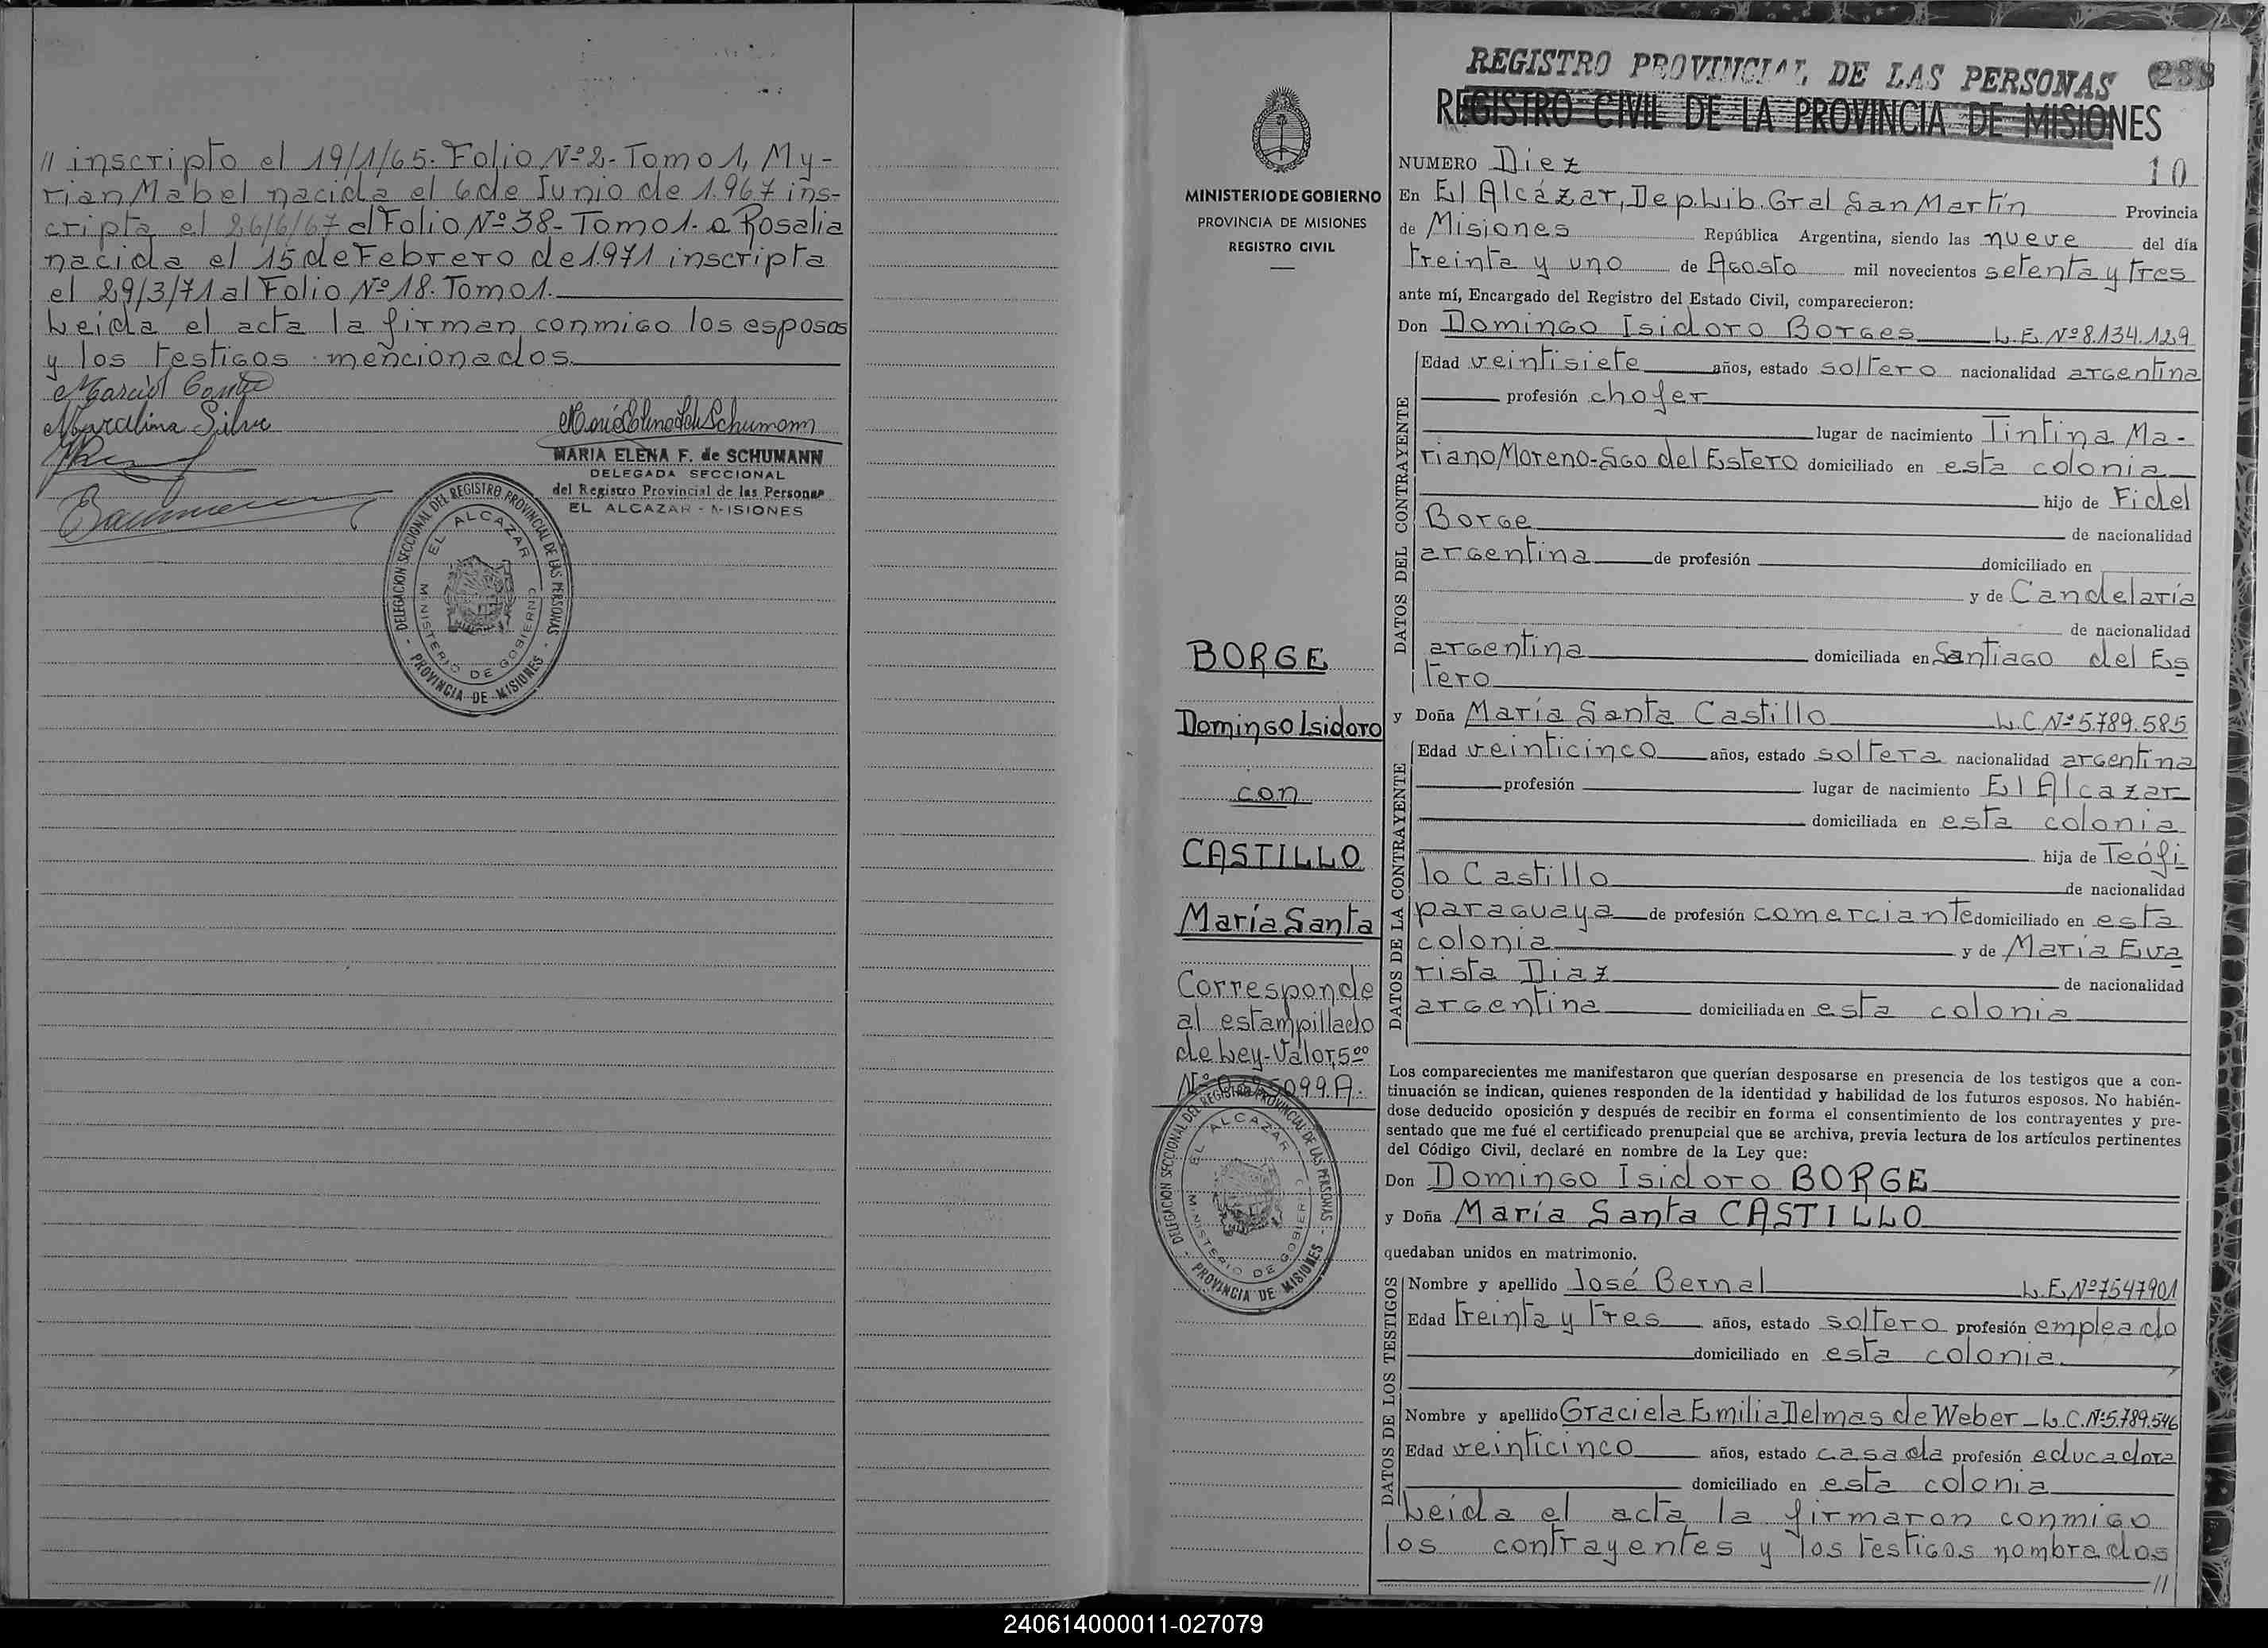 // inscripto el 19/1/65. Folio Nº2- Tomo 1, My-
rian Mabel nacida el 6 de Junio de 1.967 ins-
cripta el 26/6/67 al Folio Nº38- Tomo 1. a Rosalia
nacida el 15 de Febrero de 1.971 inscripta
el 29/3/71 al Folio Nº18. Tomo 1.
Leida el acta la firman conmigo los esposos
y los testigos mencionados.
Marcelina Silva
MARIA ELENA F. de SCHUMANN
DELEGADA SECCIONAL
del Registro Provincial de las Personas
EL ALCAZAR - MISIONES
DELEGACION SECCIONAL DEL REGISTRO PROVINCIAL DE LAS PERSONAS
EL ALCAZAR
MINISTERIO DE GOBIERNO
- PROVINCIA DE MISIONES -
MINISTERIO DE GOBIERNO
PROVINCIA DE MISIONES
REGISTRO CIVIL
BORGE
Domingo Isidoro
con
CASTILLO
María Santa
Corresponde
al estampillado
de Ley-Valor,5ºº
DELEGACION SECCIONAL DEL REGISTRO PROVINCIAL DE LAS PERSONAS
EL ALCAZAR
MINISTERIO DE GOBIERNO
- PROVINCIA DE MISIONES -
REGISTRO PROVINCIAL DE LAS PERSONAS 238
REGISTRO CIVIL DE LA PROVINCIA DE MISIONES
NUMERO Diez 10
En El Alcázar, Dep. Lib. Gral San Martín Provincia
de Misiones República Argentina, siendo las nueve del día
treinta y uno de Agosto mil novecientos setenta y tres
ante mí, Encargado del Registro del Estado Civil, comparecieron:
Don Domingo Isidoro Borges L.E. Nº8.134.129
DATOS DEL CONTRAYENTE
Edad veintisiete años, estado soltero nacionalidad argentina
profesión chofer
lugar de nacimiento Tintina Ma-
riano Moreno-Sgo del Estero domiciliado en esta colonia
hijo de Fidel
Borge
de nacionalidad
argentina de profesión domiciliado en
y de Candelaria
de nacionalidad
argentina domiciliada en Santiago del Es
tero
y Doña María Santa Castillo L.C Nº5.789.585
DATOS DE LA CONTRAYENTE
Edad veinticinco años, estado soltera nacionalidad argentina
profesión lugar de nacimiento El Alcazar
domiciliada en esta colonia
hija de Teófi
lo Castillo
de nacionalidad
paraguaya de profesión comerciante domiciliado en esta
colonia y de María Eva
rista Diaz
de nacionalidad
argentina domiciliada en esta colonia
Los comparecientes me manifestaron que querían desposarse en presencia de los testigos que a con-
tinuación se indican, quienes responden de la identidad y habilidad de los futuros esposos. No habién-
dose deducido oposición y después de recibir en forma el consentimiento de los contrayentes y pre-
sentado que me fué el certificado prenupcial que se archiva, previa lectura de los artículos pertinentes
del Código Civil, declaré en nombre de la Ley que:
Don Domingo Isidoro BORGE
y Doña María Santa CASTILLO
quedaban unidos en matrimonio.
DATOS DE LOS TESTIGOS
Nombre y apellido José Bernal L.E Nº7547901
Edad treinta y tres años, estado soltero profesión empleado
domiciliado en esta colonia.
Nombre y apellido Graciela Emilia Delmas de Weber - L.C.Nº5.789.546
Edad veinticinco años, estado casada profesión educadora
domiciliado en esta colonia
Leida el acta la firmaron conmigo
los contrayentes y los testigos nombrados
//
240614000011-027079